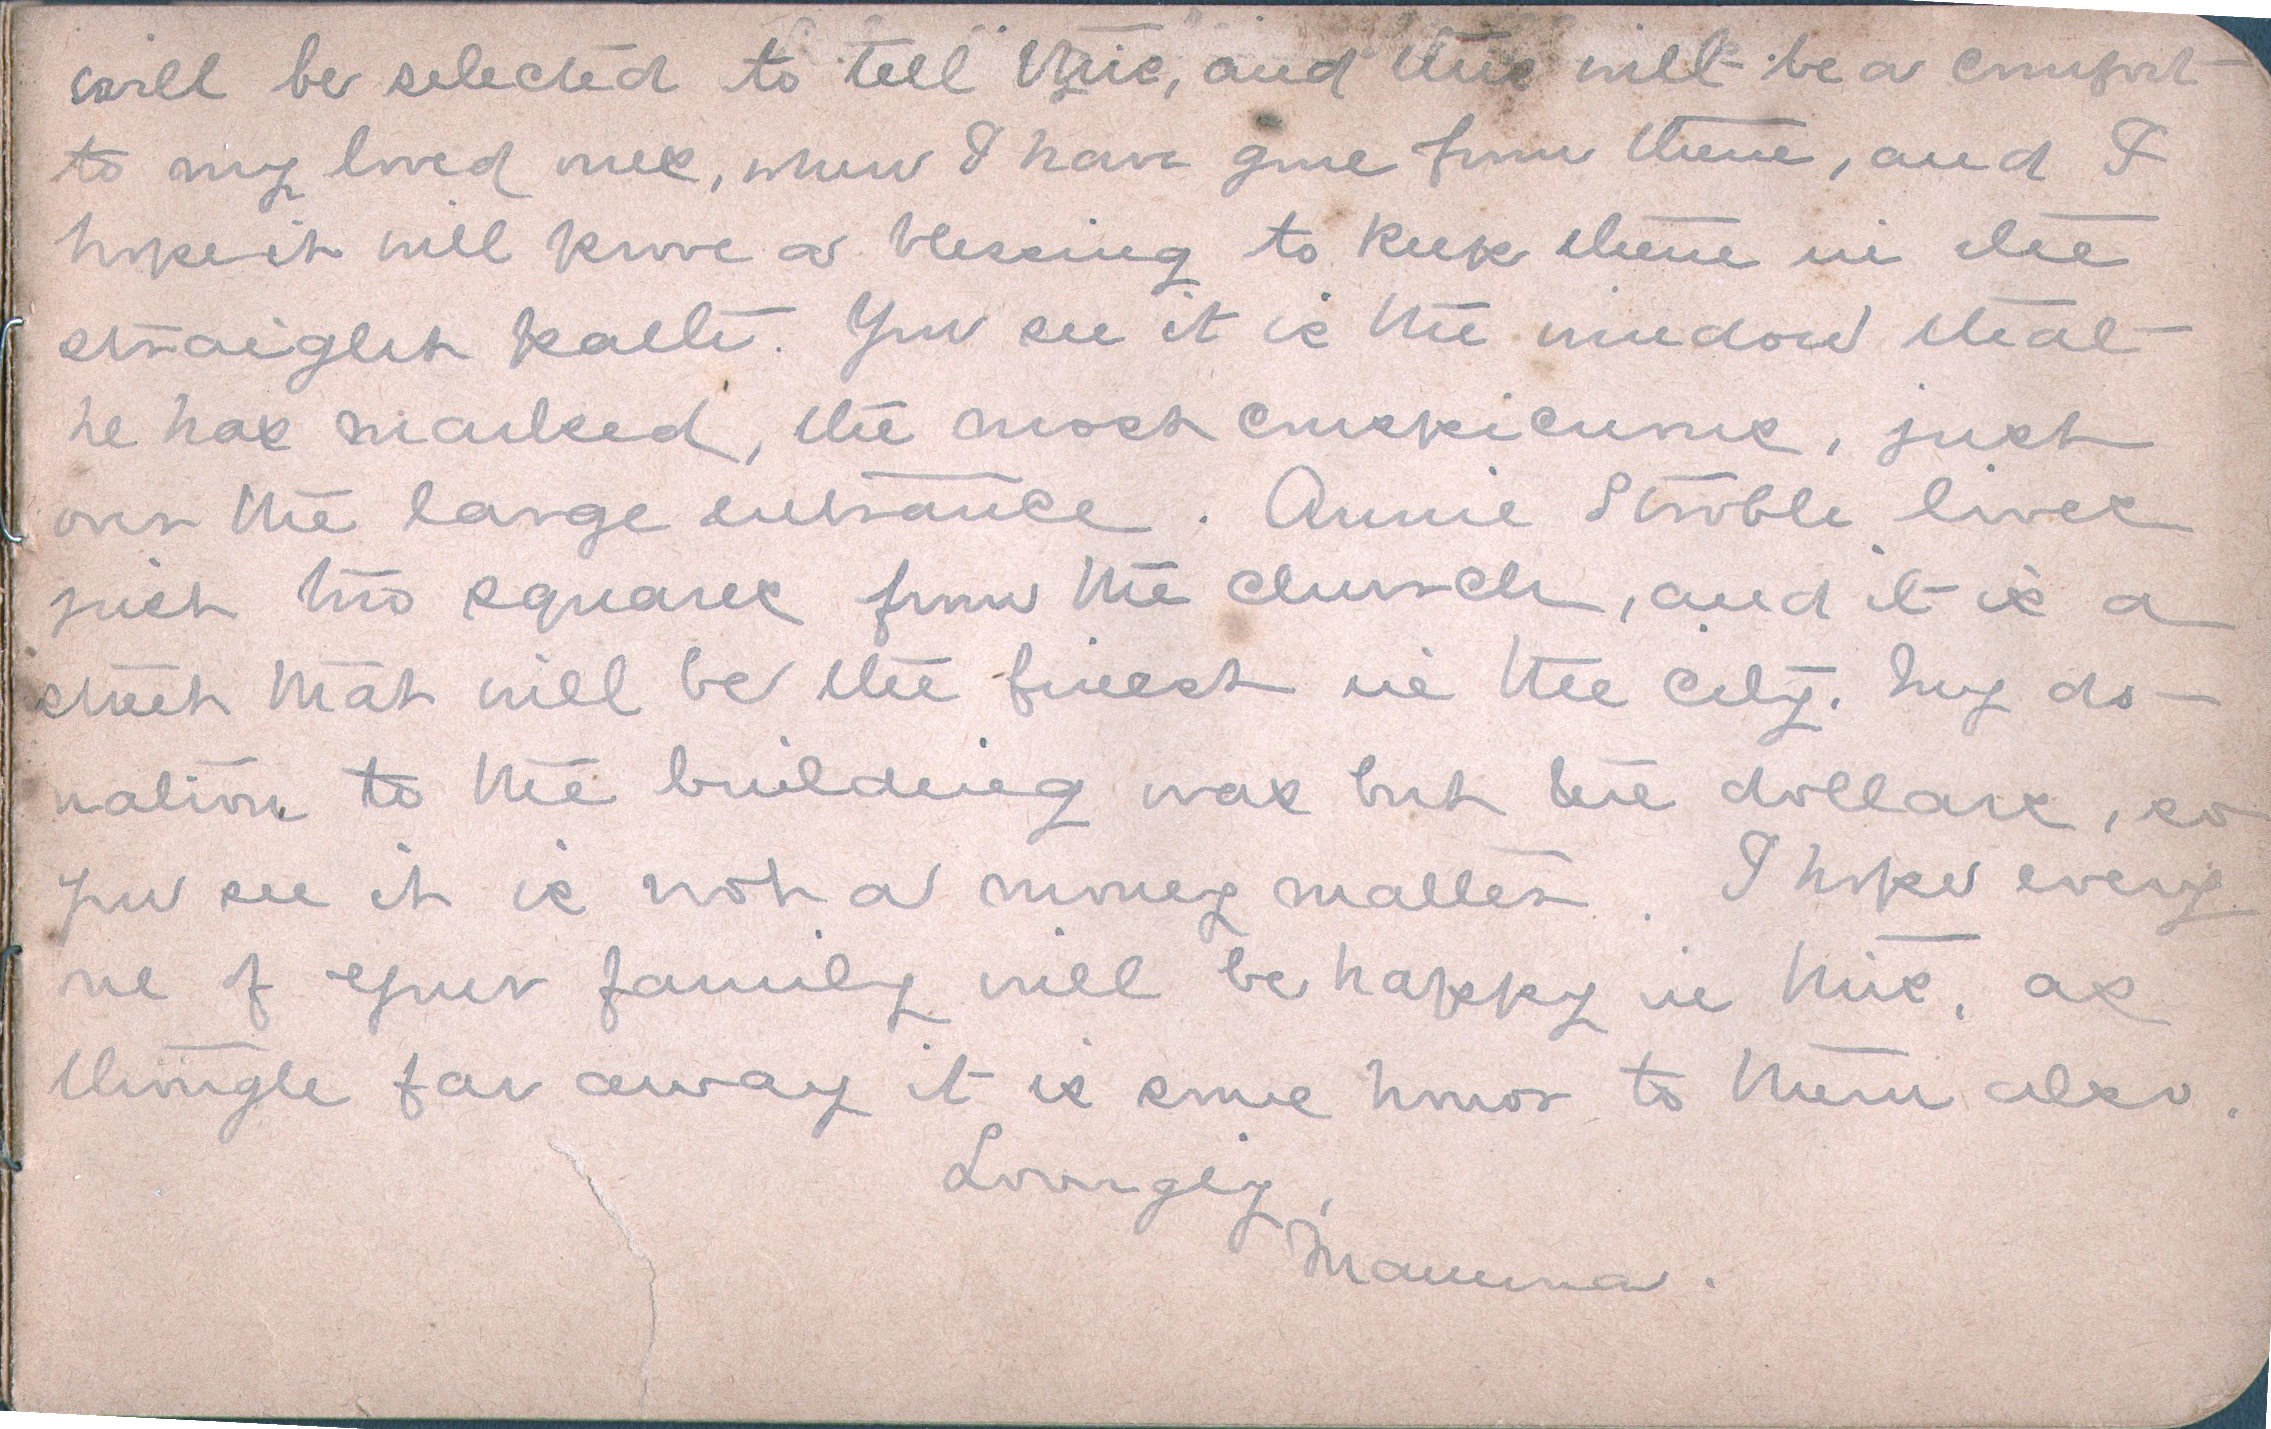 will be selected to tell this, and this will be a comfort
to my loved ones, when I have gone from them, and I
hope it will prove a blessing to keep them in the
straight path. You see it is the window that
he has marked, the most conspicuous, just
over the large entrance. Annie Stroble lives
just two squares from the church, and it is a
street that will be the finest in the city. My do-
nation to the building was but ten dollars, so
you see it is not a money matter. I hope every
one of your family will be happy in this, as
though far away it is some honor to them also.
Lovingly,
Mamma.